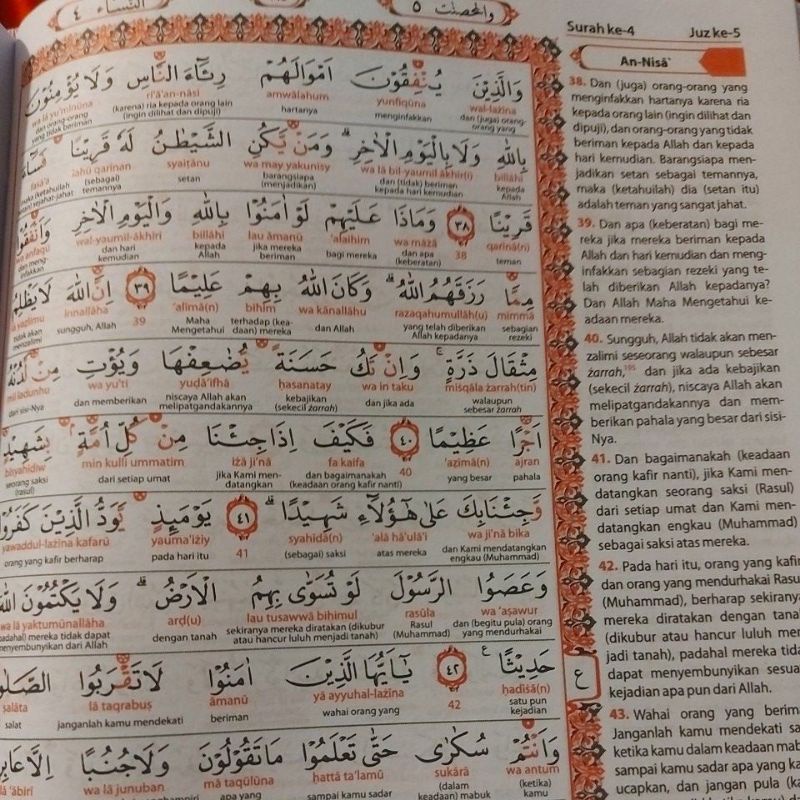 النساء ٤
والمحصنت ٥
Surah ke-4
Juz ke-5
An-Nisā'
وَالَّذِيْنَ يُنْفِقُوْنَ اَمْوَالَهُمْ رِئَاۤءَ النَّاسِ وَلَا يُؤْمِنُوْنَ
wal-lażīna yunfiqūna amwālahum ri'ā'an-nāsi wa lā yu'minūna
dan (juga) orang-orang yang menginfakkan hartanya (karena) ria kepada orang lain (ingin dilihat dan dipuji) dan orang-orang yang tidak beriman
بِاللّٰهِ وَلَا بِالْيَوْمِ الْاٰخِرِ ۗ وَمَنْ يَّكُنِ الشَّيْطٰنُ لَهٗ قَرِيْنًا فَسَاۤءَ
billāhi wa lā bil-yaumil ākhir(i) wa may yakunisy syaiṭānu lahū qarīnan fasā'a
kepada Allah dan (tidak) beriman kepada hari kemudian barangsiapa (menjadikan) setan (sebagai) temannya maka (ketahuilah)
قَرِيْنًا ۝٣٨ وَمَاذَا عَلَيْهِمْ لَوْ اٰمَنُوْا بِاللّٰهِ وَالْيَوْمِ الْاٰخِرِ وَاَنْفَقُوْا
qarīnā(n) 38 wa māżā 'alaihim lau āmanū billāhi wal-yaumil-ākhiri wa anfaqū
teman dan apa (keberatan) bagi mereka jika mereka beriman kepada Allah dan hari kemudian dan meng-infakkan
مِمَّا رَزَقَهُمُ اللّٰهُ ۗ وَكَانَ اللّٰهُ بِهِمْ عَلِيْمًا ۝٣٩ اِنَّ اللّٰهَ لَا يَظْلِمُ
mimmā razaqahumullāh(u) wa kānallāhu bihim 'alīmā(n) 39 innallāha lā yaẓlimu
sebagian rezeki yang telah diberikan Allah kepadanya dan Allah terhadap (kea-daan) mereka Maha Mengetahui sungguh, Allah tidak akan menzalimi
مِثْقَالَ ذَرَّةٍ ۚ وَاِنْ تَكُ حَسَنَةً يُّضٰعِفْهَا وَيُؤْتِ مِنْ لَّدُنْهُ
miṡqāla żarrah(tin) wa in taku ḥasanatay yuḍā'ifhā wa yu'ti mil ladunhu
walaupun sebesar żarrah dan jika ada kebajikan (sekecil żarrah) niscaya Allah akan melipatgandakannya dan memberikan dari sisi-Nya
اَجْرًا عَظِيْمًا ۝٤٠ فَكَيْفَ اِذَا جِئْنَا مِنْ كُلِّ اُمَّةٍۢ بِشَهِيْدٍ
ajran 'aẓīmā(n) 40 fa kaifa iżā ji'nā min kulli ummatim bisyahīdiw
pahala yang besar dan bagaimanakah (keadaan orang kafir nanti) jika Kami men-datangkan dari setiap umat seorang saksi (rasul)
وَّجِئْنَا بِكَ عَلٰى هٰٓؤُلَاۤءِ شَهِيْدًا ۝٤١ يَوْمَىِٕذٍ يَّوَدُّ الَّذِيْنَ كَفَرُوْا
wa ji'nā bika 'alā hā'ulā'i syahīdā(n) 41 yauma'iżiy yawaddul-lażīna kafarū
dan Kami mendatangkan engkau (Muhammad) atas mereka (sebagai) saksi pada hari itu orang yang kafir berharap
وَعَصَوُا الرَّسُوْلَ لَوْ تُسَوّٰى بِهِمُ الْاَرْضُ ۗ وَلَا يَكْتُمُوْنَ اللّٰهَ
wa 'aṣawur rasūla lau tusawwā bihimul arḍ(u) wa lā yaktumūnallāha
dan (begitu pula) orang yang mendurhakai Rasul (Muhammad) sekiranya mereka diratakan (dikubur atau hancur luluh menjadi tanah) dengan tanah (padahal) mereka tidak dapat menyembunyikan dari Allah
حَدِيْثًا ۝٤٢ يٰٓاَيُّهَا الَّذِيْنَ اٰمَنُوْا لَا تَقْرَبُوا الصَّلٰوةَ
ḥadīṡā(n) 42 yā ayyuhal-lażīna āmanū lā taqrabuṣ ṣalāta
satu pun kejadian wahai orang yang beriman janganlah kamu mendekati salat
وَاَنْتُمْ سُكَارٰى حَتّٰى تَعْلَمُوْا مَا تَقُوْلُوْنَ وَلَا جُنُبًا اِلَّا عَابِرِيْ
wa antum sukārā ḥattā ta'lamū mā taqūlūna wa lā junuban illā 'ābirī
(ketika) kamu (dalam keadaan) mabuk sampai kamu sadar apa yang
ع
38. Dan (juga) orang-orang yang
menginfakkan hartanya karena ria
kepada orang lain (ingin dilihat dan
dipuji), dan orang-orang yang tidak
beriman kepada Allah dan kepada
hari kemudian. Barangsiapa men-
jadikan setan sebagai temannya,
maka (ketahuilah) dia (setan itu)
adalah teman yang sangat jahat.
39. Dan apa (keberatan) bagi me-
reka jika mereka beriman kepada
Allah dan hari kemudian dan meng-
infakkan sebagian rezeki yang te-
lah diberikan Allah kepadanya?
Dan Allah Maha Mengetahui ke-
adaan mereka.
40. Sungguh, Allah tidak akan men-
zalimi seseorang walaupun sebesar
żarrah,¹⁹⁵ dan jika ada kebajikan
(sekecil żarrah), niscaya Allah akan
melipatgandakannya dan mem-
berikan pahala yang besar dari sisi-
Nya.
41. Dan bagaimanakah (keadaan
orang kafir nanti), jika Kami men-
datangkan seorang saksi (Rasul)
dari setiap umat dan Kami men-
datangkan engkau (Muhammad)
sebagai saksi atas mereka.
42. Pada hari itu, orang yang kafir
dan orang yang mendurhakai Rasul
(Muhammad), berharap sekiranya
mereka diratakan dengan tanah
(dikubur atau hancur luluh men-
jadi tanah), padahal mereka tidak
dapat menyembunyikan sesuatu
kejadian apa pun dari Allah.
43. Wahai orang yang beriman!
Janganlah kamu mendekati salat
ketika kamu dalam keadaan mabuk
sampai kamu sadar apa yang kamu
ucapkan, dan jangan pula (kamu